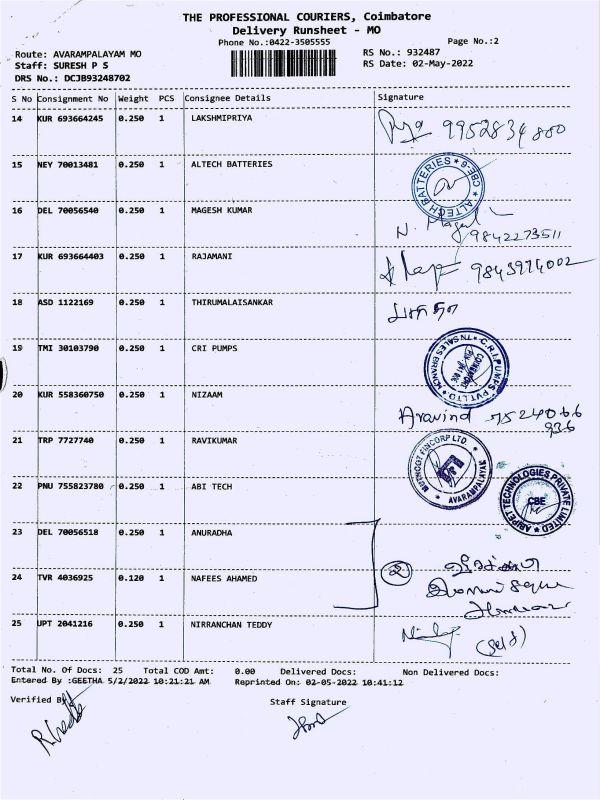 THE PROFESSIONAL COURIERS, Coimbatore
Delivery Runsheet - MO
Phone No.:0422-3505555
Page No.:2
Route: AVARAMPALAYAM MO
RS No.: 932487
Staff: SURESH P S
RS Date: 02-May-2022
DRS No.: DCJB93248702
S No Consignment No Weight PCS Consignee Details Signature
14 KUR 693664245 0.250 1 LAKSHMIPRIYA 9952834880
15 NEY 70013481 0.250 1 ALTECH BATTERIES
ALTECH BATTERIES * CBE-6 *
16 DEL 70056540 0.250 1 MAGESH KUMAR
9842273511
17 KUR 693664403 0.250 1 RAJAMANI
18 ASD 1122169 0.250 1 THIRUMALAISANKAR
19 TMI 30103790 0.250 1 CRI PUMPS
C.R.I. PUMPS PVT LTD
20 KUR 558360750 0.250 1 NIZAAM
Aravind
936
21 TRP 7727740 0.250 1 RAVIKUMAR
MUTHOOT FINCORP LTD
* AVARAMPALAYAM *
22 PNU 755823780 0.250 1 ABI TECH
TECHNOLOGIES PRIVATE LIMITED
CBE
23 DEL 70056518 0.250 1 ANURADHA
24 TVR 4036925 0.120 1 NAFEES AHAMED
2
25 UPT 2041216 0.250 1 NIRRANCHAN TEDDY
Total No. Of Docs: 25 Total COD Amt: 0.00 Delivered Docs: Non Delivered Docs:
Entered By :GEETHA 5/2/2022 10:21:21 AM Reprinted On: 02-05-2022 10:41:12
Verified By
Staff Signature